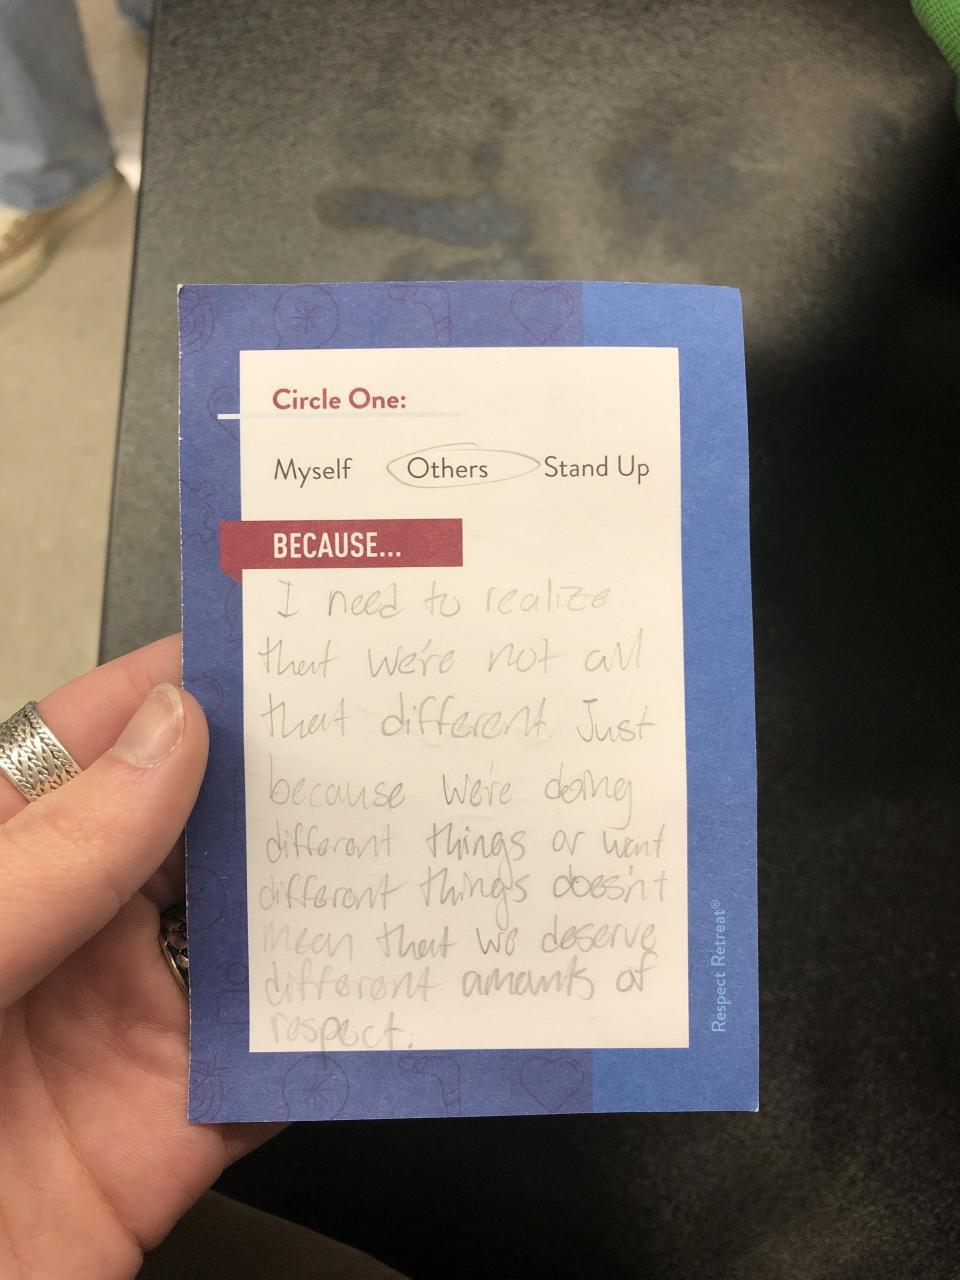 Circle One:
Myself Others Stand Up
BECAUSE...
I need to realize
that we're not all
that different. Just
because we're doing
different things or want
different things doesn't
mean that we deserve
different amounts of
respect.
Respect Retreat®